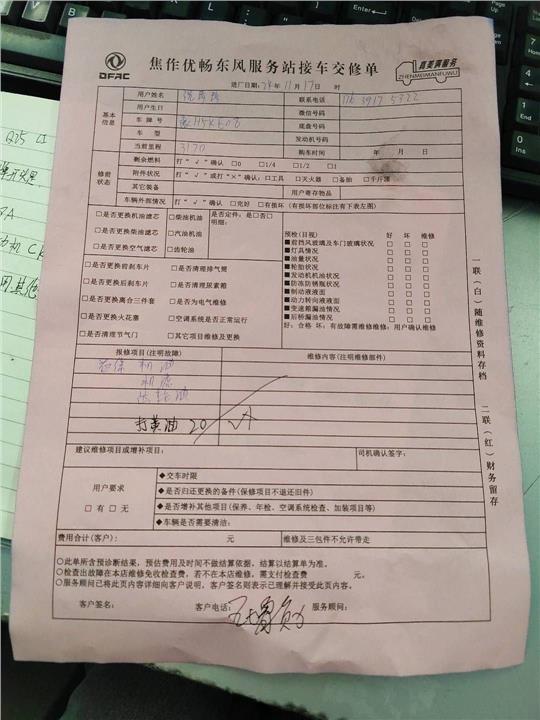 DFAC
焦作优畅东风服务站接车交修单
真美满服务
ZHENMEIMANFUWU
进厂日期:24年 11月 17日 时
基本信息
用户姓名
联系电话
用户生日
微信号码
车牌号
底盘号码
车型
发动机号
当前里程 3170
购车时间 年 月 日
修前状态
剩余燃料 打“√”确认 □0 □1/4 □1/2 □1
附件状况 打“√”或打“×”确认:□工具 □灭火器 □备胎 □千斤顶
其它装备
用户寄存物品
车辆外部情况 打“√”确认 □完好 □有损坏(有损坏部位标注有下表左图)
□是否更换机油滤芯 □柴油机油 是否定件:是□否□
□是否更换柴油滤芯 □汽油机油 明细:
□是否更换空气滤芯 □齿轮油
□是否更换前刹车片 □是否清理排气筒
□是否更换后刹车片 □是否清理尿素箱
□是否更换离合三件套 □是否为电气维修
□是否更换火花塞 □空调系统是否正常运行
□是否清理节气门 □其它项目维修及更换
预检(目视) 好 坏 维修
■前挡风玻璃及车门玻璃状况 □ □ □
■灯具情况 □ □ □
■油量状况 □ □ □
■轮胎状况 □ □ □
■发动机机油状况 □ □ □
■防冻防锈瓶状况 □ □ □
■制动液液面 □ □ □
■动力转向液液面 □ □ □
■变速箱漏油情况 □ □ □
■后桥漏油情况 □ □ □
好:合格 坏:有故障需维修维修:用户确认维修
报修项目(注明故障)
维修内容(注明维修部件)
机油
机滤
打黄油 20
建议维修项目或增补项目:
司机确认签字:
用户要求
□有 □无
◆交车时限
◆是否归还更换的备件(保修项目不退还旧件)
◆是否增补其他项目(保养、年检、空调系统检查、加装项目等)
◆车辆是否需要清洁:
费用合计(客户): 元
维修及三包件不允许带走
○此单所含预诊断结果,预估费用及时间不做结算依据,结算以结算单为准。
○检查出故障在本店维修免收检查费,若不在本店维修,需支付检查费 元。
○服务顾问已将此页内容详细向客户说明,客户签名则表示已理解并接受此页内容。
客户签名: 客户电话: 服务顾问:
一联(白)随维修资料存档
二联(红)财务留存